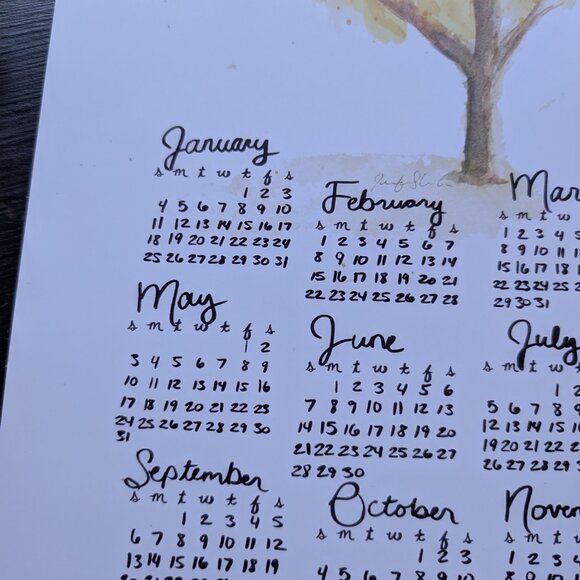 January
s m t w t f s
1 2 3
4 5 6 7 8 9 10
11 12 13 14 15 16 17
18 19 20 21 22 23 24
25 26 27 28 29 30 31
February
s m t w t f s
1 2 3 4 5 6 7
8 9 10 11 12 13 14
15 16 17 18 19 20 21
22 23 24 25 26 27 28
Mar
s m t w
1 2 3 4 5
8 9 10 11
15 16 17 18
22 23 24 25
29 30 31
May
s m t w t f s
1 2
3 4 5 6 7 8 9
10 11 12 13 14 15 16
17 18 19 20 21 22 23
24 25 26 27 28 29 30
31
June
s m t w t f s
1 2 3 4 5 6
7 8 9 10 11 12 13
14 15 16 17 18 19 20
21 22 23 24 25 26 27
28 29 30
July
s m t w t
1 2
5 6 7 8 9
12 13 14 15
19 20 21 22
26 27 28 29
September
s m t w t f s
1 2 3 4 5
6 7 8 9 10 11 12
13 14 15 16 17 18 19
October
s m t w t f s
1 2 3
4 5 6 7 8 9 10
Novem
s m t w
1 2 3 4
8 9 10